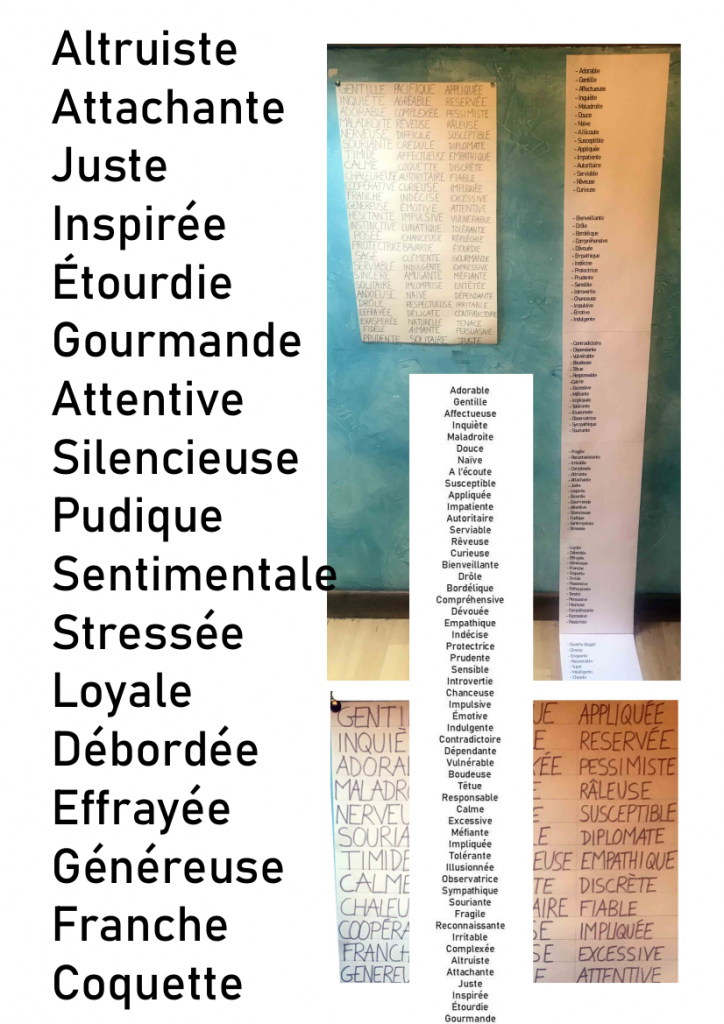 Altruiste
Attachante
Juste
Inspirée
Étourdie
Gourmande
Attentive
Silencieuse
Pudique
Sentimentale
Stressée
Loyale
Débordée
Effrayée
Généreuse
Franche
Coquette
GENTILLE PACIFIQUE APPLIQUÉE
INQUIÈTE AGRÉABLE RESERVÉE
ADORABLE COMPLEXÉE PESSIMISTE
MALADROITE RÊVEUSE RÂLEUSE
NERVEUSE DIFFICILE SUSCEPTIBLE
SOURIANTE CRÉDULE DIPLOMATE
TIMIDE AFFECTUEUSE EMPATHIQUE
CALME COQUETTE DISCRÈTE
CHALEUREUSE AUTORITAIRE FIABLE
COOPÉRATIVE CURIEUSE IMPLIQUÉE
FRANCHE INDÉCISE EXCESSIVE
GENEREUSE ÉMOTIVE ATTENTIVE
HESITANTE IMPULSIVE VULNERABLE
INSTINCTIVE LUNATIQUE TOLÉRANTE
POSÉE CHANCEUSE RÉFLÉCHIE
PROTECTRICE BAVARDE ÉTOURDIE
SAGE CLÉMENTE GOURMANDE
SERVIABLE INDULGENTE EXPRESSIVE
SINCÈRE AMUSANTE MÉFIANTE
SOLITAIRE INCOMPRISE ENTÊTÉE
ANXIEUSE NAÏVE DÉPENDANTE
DRÔLE RESPECTUEUSE IRRITABLE
EFFRAYÉE DÉLICATE CONTRADICTOIRE
EXASPERÉE NATURELLE TENACE
FIDÈLE AIMANTE PERSUASIVE
PRUDENTE SOLITAIRE JUSTE
- Adorable
- Gentille
- Affectueuse
- Inquiète
- Maladroite
- Douce
- Naïve
- A l'écoute
- Susceptible
- Appliquée
- Impatiente
- Autoritaire
- Serviable
- Rêveuse
- Curieuse
- Bienveillante
- Drôle
- Bordélique
- Compréhensive
- Dévouée
- Empathique
- Indécise
- Protectrice
- Prudente
- Sensible
- Introvertie
- Chanceuse
- Impulsive
- Émotive
- Indulgente
- Contradictoire
- Dépendante
- Vulnérable
- Boudeuse
- Têtue
- Responsable
- Calme
- Excessive
- Méfiante
- Impliquée
- Tolérante
- Illusionnée
- Observatrice
- Sympathique
- Souriante
- Fragile
- Reconnaissante
- Irritable
- Complexée
- Altruiste
- Attachante
- Juste
- Inspirée
- Étourdie
- Gourmande
- Attentive
- Silencieuse
- Pudique
- Sentimentale
- Stressée
- Loyale
- Débordée
- Effrayée
- Généreuse
- Franche
- Coquette
Adorable
Gentille
Affectueuse
Inquiète
Maladroite
Douce
Naïve
A l'écoute
Susceptible
Appliquée
Impatiente
Autoritaire
Serviable
Rêveuse
Curieuse
Bienveillante
Drôle
Bordélique
Compréhensive
Dévouée
Empathique
Indécise
Protectrice
Prudente
Sensible
Introvertie
Chanceuse
Impulsive
Émotive
Indulgente
Contradictoire
Dépendante
Vulnérable
Boudeuse
Têtue
Responsable
Calme
Excessive
Méfiante
Impliquée
Tolérante
Illusionnée
Observatrice
Sympathique
Souriante
Fragile
Reconnaissante
Irritable
Complexée
Altruiste
Attachante
Juste
Inspirée
Étourdie
Gourmande
GENTI
INQUIÈ
ADORA
MALADR
NERVEU
SOURIA
TIMIDE
CALME
CHALEU
COOPÉRA
FRANCH
GENEREU
UE APPLIQUÉE
E RESERVÉE
ÉE PESSIMISTE
E RÂLEUSE
SUSCEPTIBLE
LE DIPLOMATE
EUSE EMPATHIQUE
TE DISCRÈTE
AIRE FIABLE
SE IMPLIQUÉE
SE EXCESSIVE
E ATTENTIVE